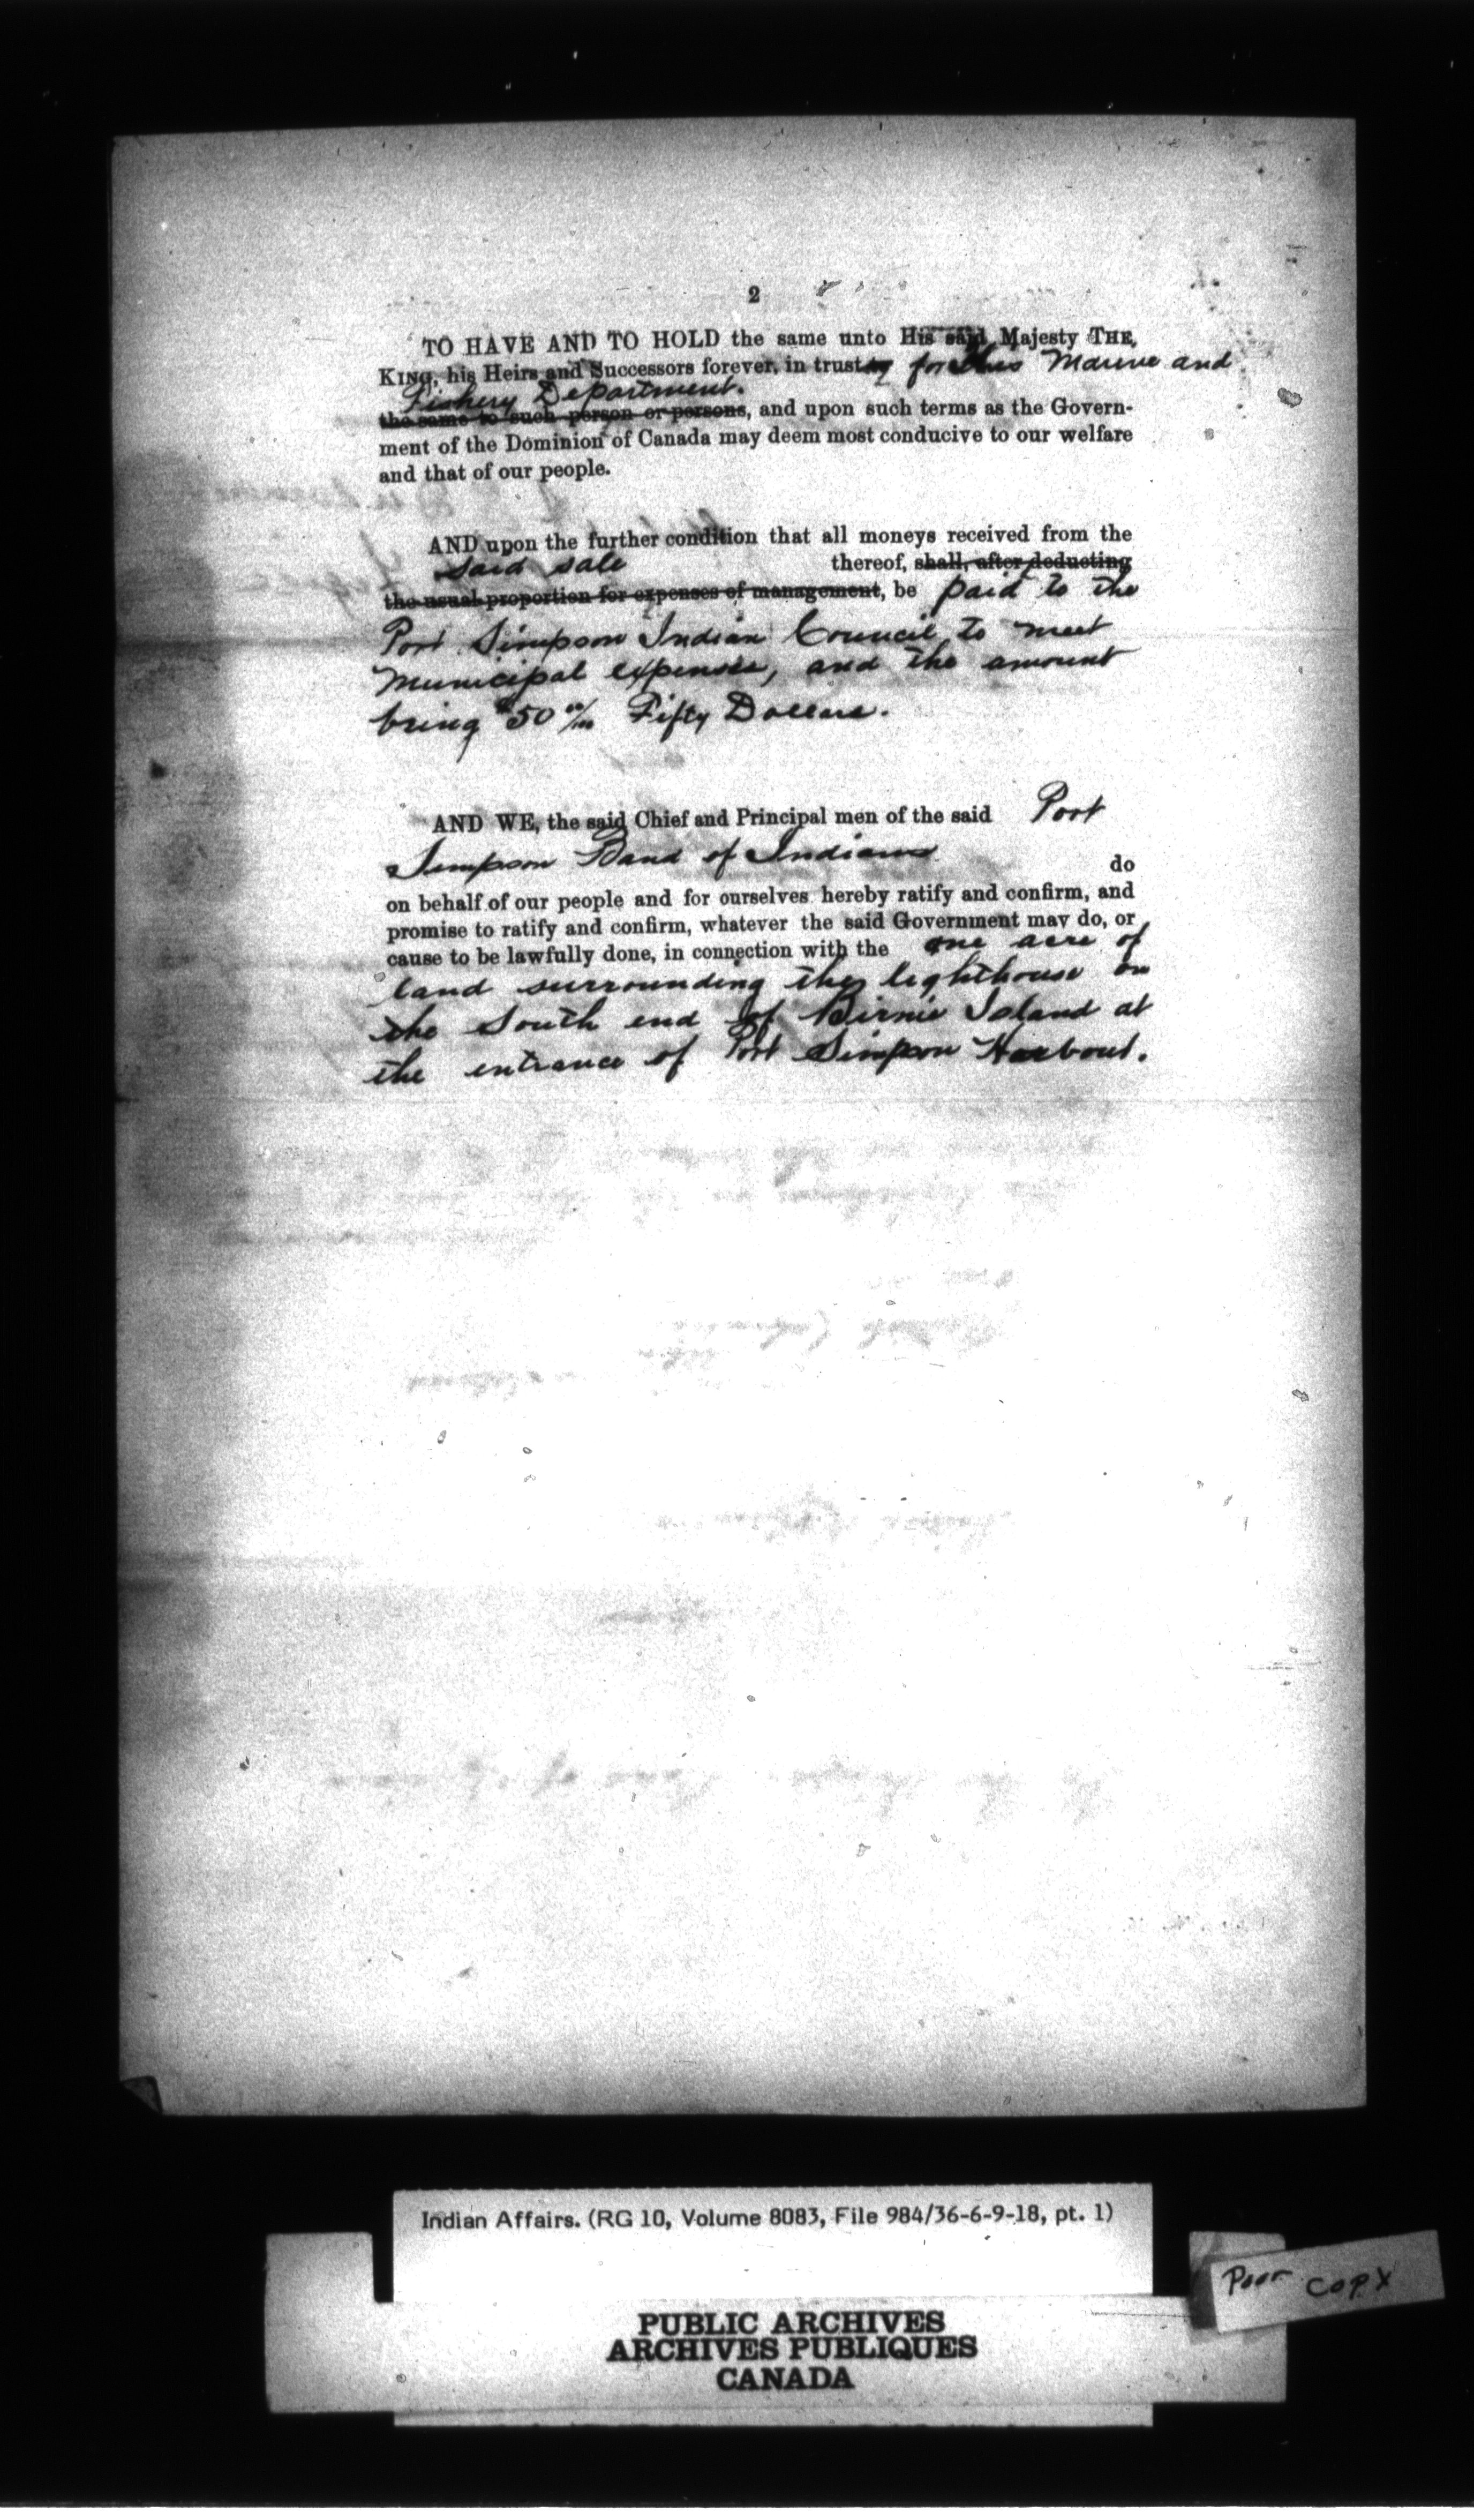 2
TO HAVE AND TO HOLD the same unto His said Majesty THE
KING, his Heirs and Successors forever, in trust for His Marine and
Fishery Department.
the same to such person or persons, and upon such terms as the Govern-
ment of the Dominion of Canada may deem most conducive to our welfare
and that of our people.
AND upon the further condition that all moneys received from the
said sale thereof, shall, after deducting
the usual proportion for expenses of management, be paid to the
Port Simpson Indian Council to meet
Municipal expenses, and the amount
being $50 00/100 Fifty Dollars.
AND WE, the said Chief and Principal men of the said Port
Simpson Band of Indians do
on behalf of our people and for ourselves hereby ratify and confirm, and
promise to ratify and confirm, whatever the said Government may do, or
cause to be lawfully done, in connection with the one acre of
land surrounding the lighthouse on
the South end of Birnie Island at
the entrance of Port Simpson Harbour.
Indian Affairs. (RG 10, Volume 8083, File 984/36-6-9-18, pt. 1)
Poor copy
PUBLIC ARCHIVES
ARCHIVES PUBLIQUES
CANADA